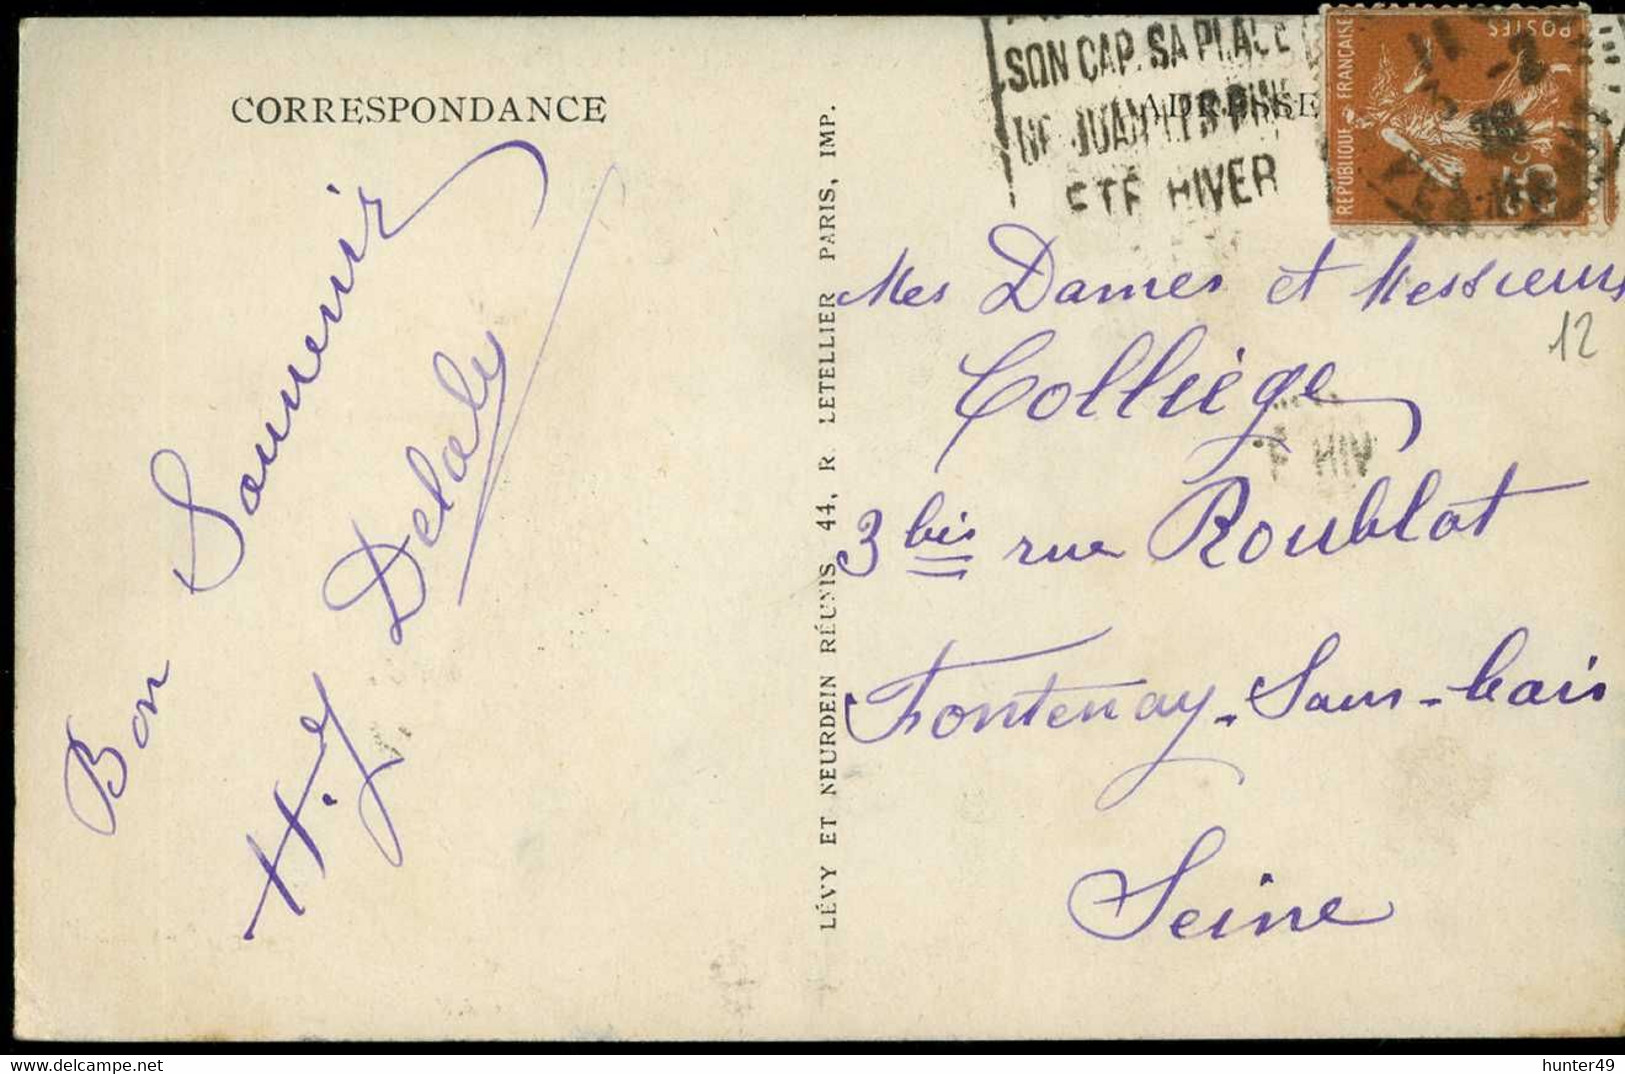 CORRESPONDANCE
Bon Souvenir
H. Delaly
LÉVY ET NEURDEIN RÉUNIS, 44, R. LETELLIER PARIS, IMP.
SON CAP. SA PLAGE
DE JUAN LES PINS
ETE HIVER
ADRESSE
REPUBLIQUE FRANÇAISE
POSTES
5c
Mes Dames et Messieurs
Colliège
3 bis rue Roublot
Fontenay-Sous-bois
Seine
12
hunter49